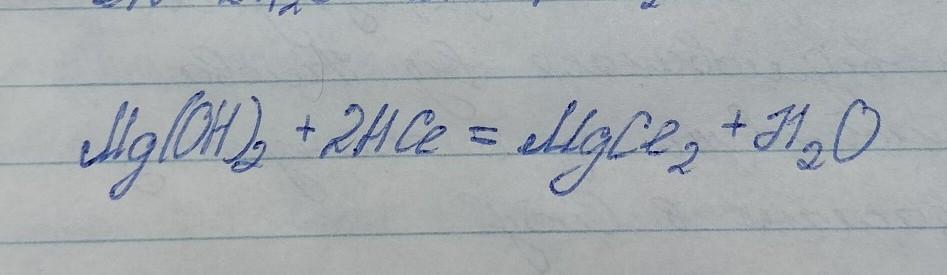 Mg(OH)₂ + 2HCl = MgCl₂ + H₂O